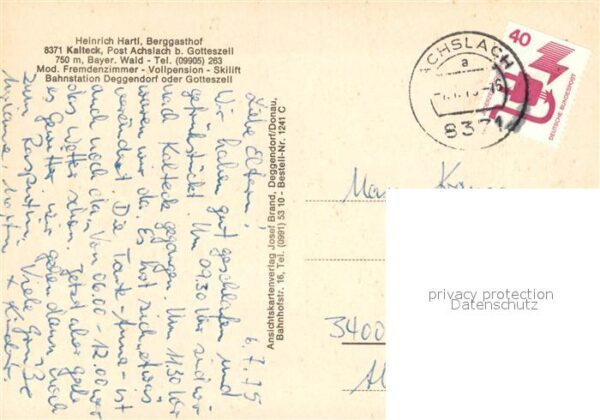 Heinrich Hartl, Berggasthof
8371 Kalteck, Post Achslach b. Gotteszell
750 m, Bayer. Wald - Tel. (09905) 263
Mod. Fremdenzimmer - Vollpension - Skilift
Bahnstation Deggendorf oder Gotteszell
6.7.75
Liebe Eltern!
Wir haben gut geschlafen und
gefrühstückt. Um 09.30 Uhr sind wir
nach Kalteck gegangen. Um 11.30 Uhr
waren wir da. Es hat sich etwas
verändert. Die Tante Anne ist
auch noch da. Von 06.00 - 12.00 war
das Wetter schön. Jetzt aber geht
es Gewitter wir gehen dann noch
zum
Viele Grüße
Martin
+ Kinder
Ansichtskartenverlag Josef Brand, Deggendorf/Donau,
Bahnhofstr. 16, Tel. (0991) 53 10 - Bestell-Nr. 1241 C
ACHSLACH
a
8371
40
DEUTSCHE BUNDESPOST
3400
privacy protection
Datenschutz